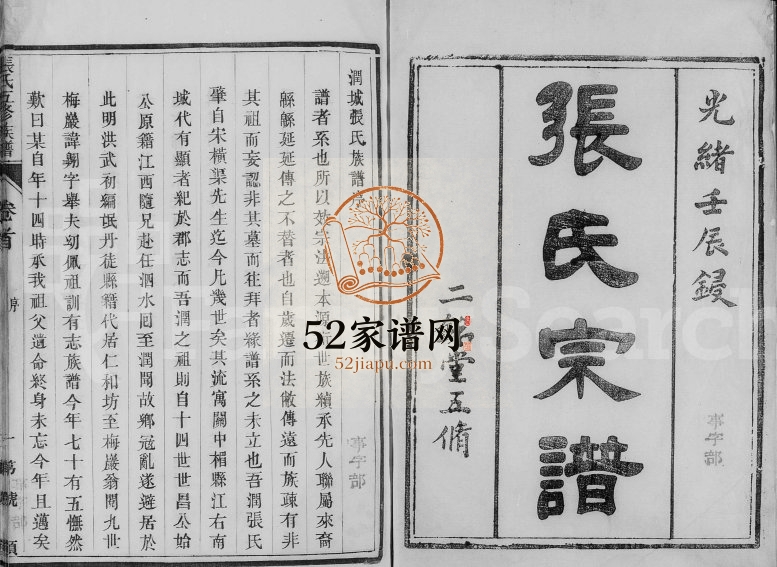 光緒壬辰鋟
張氏宗譜
二 堂五脩
事字部
潤城張氏族譜序
譜者系也所以 宗法 本源 世族賴承先人聯屬來裔
緜緜延延傳之不替者也自歲遷而法敝傳遠而族疎有非
其祖而妄認非其墓而往拜者緣譜系之未立也吾潤張氏
肇自宋橫渠先生迄今凡幾世矣其流寓關中楣縣江右南
域代有顯者紀於郡志而吾潤之祖則自十四世世昌公始
公原籍江西隨兄赴任泗水囘至潤聞故鄉寇亂遂避居於
此明洪武初編氓丹徒縣籍代居仁和坊至梅巖翁閱九世
梅巖諱 字舉夫幼佩祖訓有志族譜今年七十有五憮然
歎曰某自年十四時承我祖父遺命終身未忘今年且邁矣
張氏五修族譜
卷首
序
一
號
52家谱网
52jiapu.com
Search